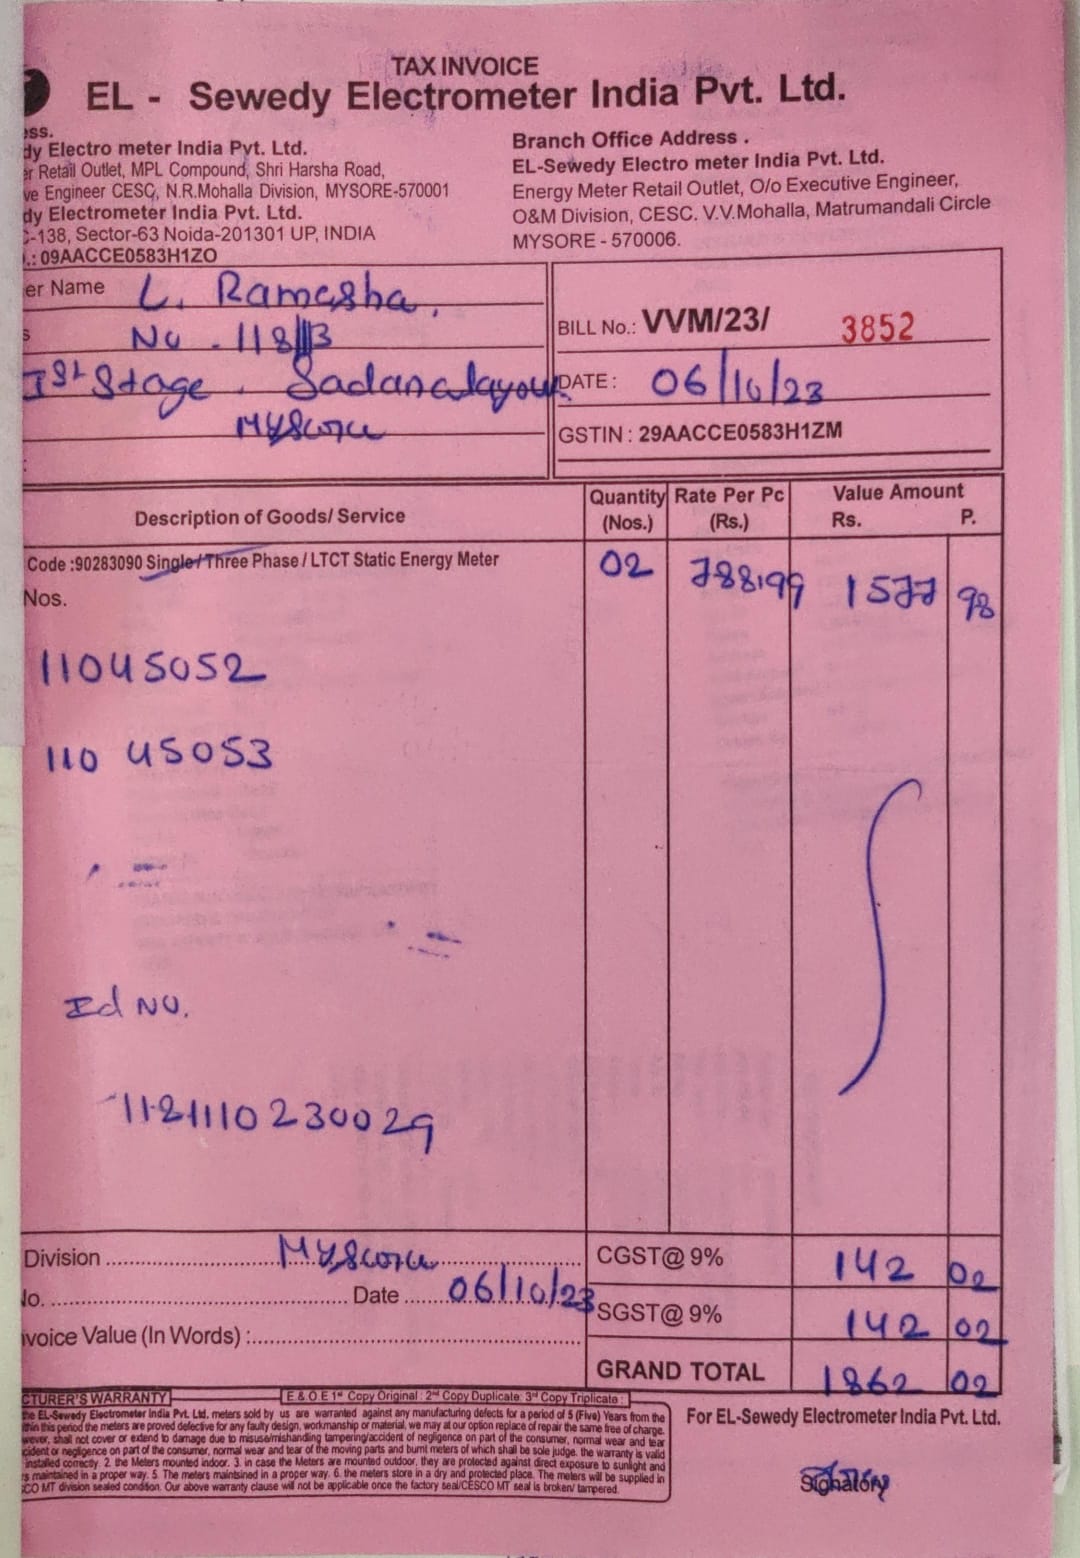 TAX INVOICE
EL - Sewedy Electrometer India Pvt. Ltd.
ess.
dy Electro meter India Pvt. Ltd.
er Retail Outlet, MPL Compound, Shri Harsha Road,
ve Engineer CESC, N.R.Mohalla Division, MYSORE-570001
dy Electrometer India Pvt. Ltd.
C-138, Sector-63 Noida-201301 UP, INDIA
.: 09AACCE0583H1ZO
Branch Office Address .
EL-Sewedy Electro meter India Pvt. Ltd.
Energy Meter Retail Outlet, O/o Executive Engineer,
O&M Division, CESC. V.V.Mohalla, Matrumandali Circle
MYSORE - 570006.
er Name L. Ramesha,
s No - 118
Ist Stage, Sadanalayout
Mysore
BILL No.: VVM/23/ 3852
DATE : 06/10/23
GSTIN : 29AACCE0583H1ZM
Description of Goods/ Service Quantity (Nos.) Rate Per Pc (Rs.) Value Amount Rs. P.
Code :90283090 Single/Three Phase / LTCT Static Energy Meter 02 788.99 1577 98
Nos.
11045052
110 45053
Id No.
11211110230029
Division .......... Mysore
No. .......... Date .......... 06/10/23
nvoice Value (In Words) :..........
CGST@ 9% 142 02
SGST@ 9% 142 02
GRAND TOTAL 1862 02
CTURER'S WARRANTY E & O E 1st Copy Original : 2nd Copy Duplicate: 3rd Copy Triplicate :
he EL-Sewedy Electrometer India Pvt. Ltd. meters sold by us are warranted against any manufacturing defects for a period of 5 (Five) Years from the
thin this period the meters are proved defective for any faulty design, workmanship or material, we may at our option replace of repair the same free of charge.
wever, shall not cover or extend to damage due to misuse/mishanding tampering/accident of negligence on part of the consumer, normal wear and tear
cident or negligence on part of the consumer, normal wear and tear of the moving parts and burnt meters of which shall be sole judge. the warranty is valid
installed correctly. 2. the Meters mounted indoor. 3. in case the Meters are mounted outdoor, they are protected against direct exposure to sunlight and
s maintained in a proper way. 5. The meters maintsined in a proper way. 6. the meters store in a dry and protected place. The meters will be supplied in
CO MT division sealed condition. Our above warranty clause will not be applicable once the factory seal/CESCO MT seal is broken/ tampered.
For EL-Sewedy Electrometer India Pvt. Ltd.
Signatory